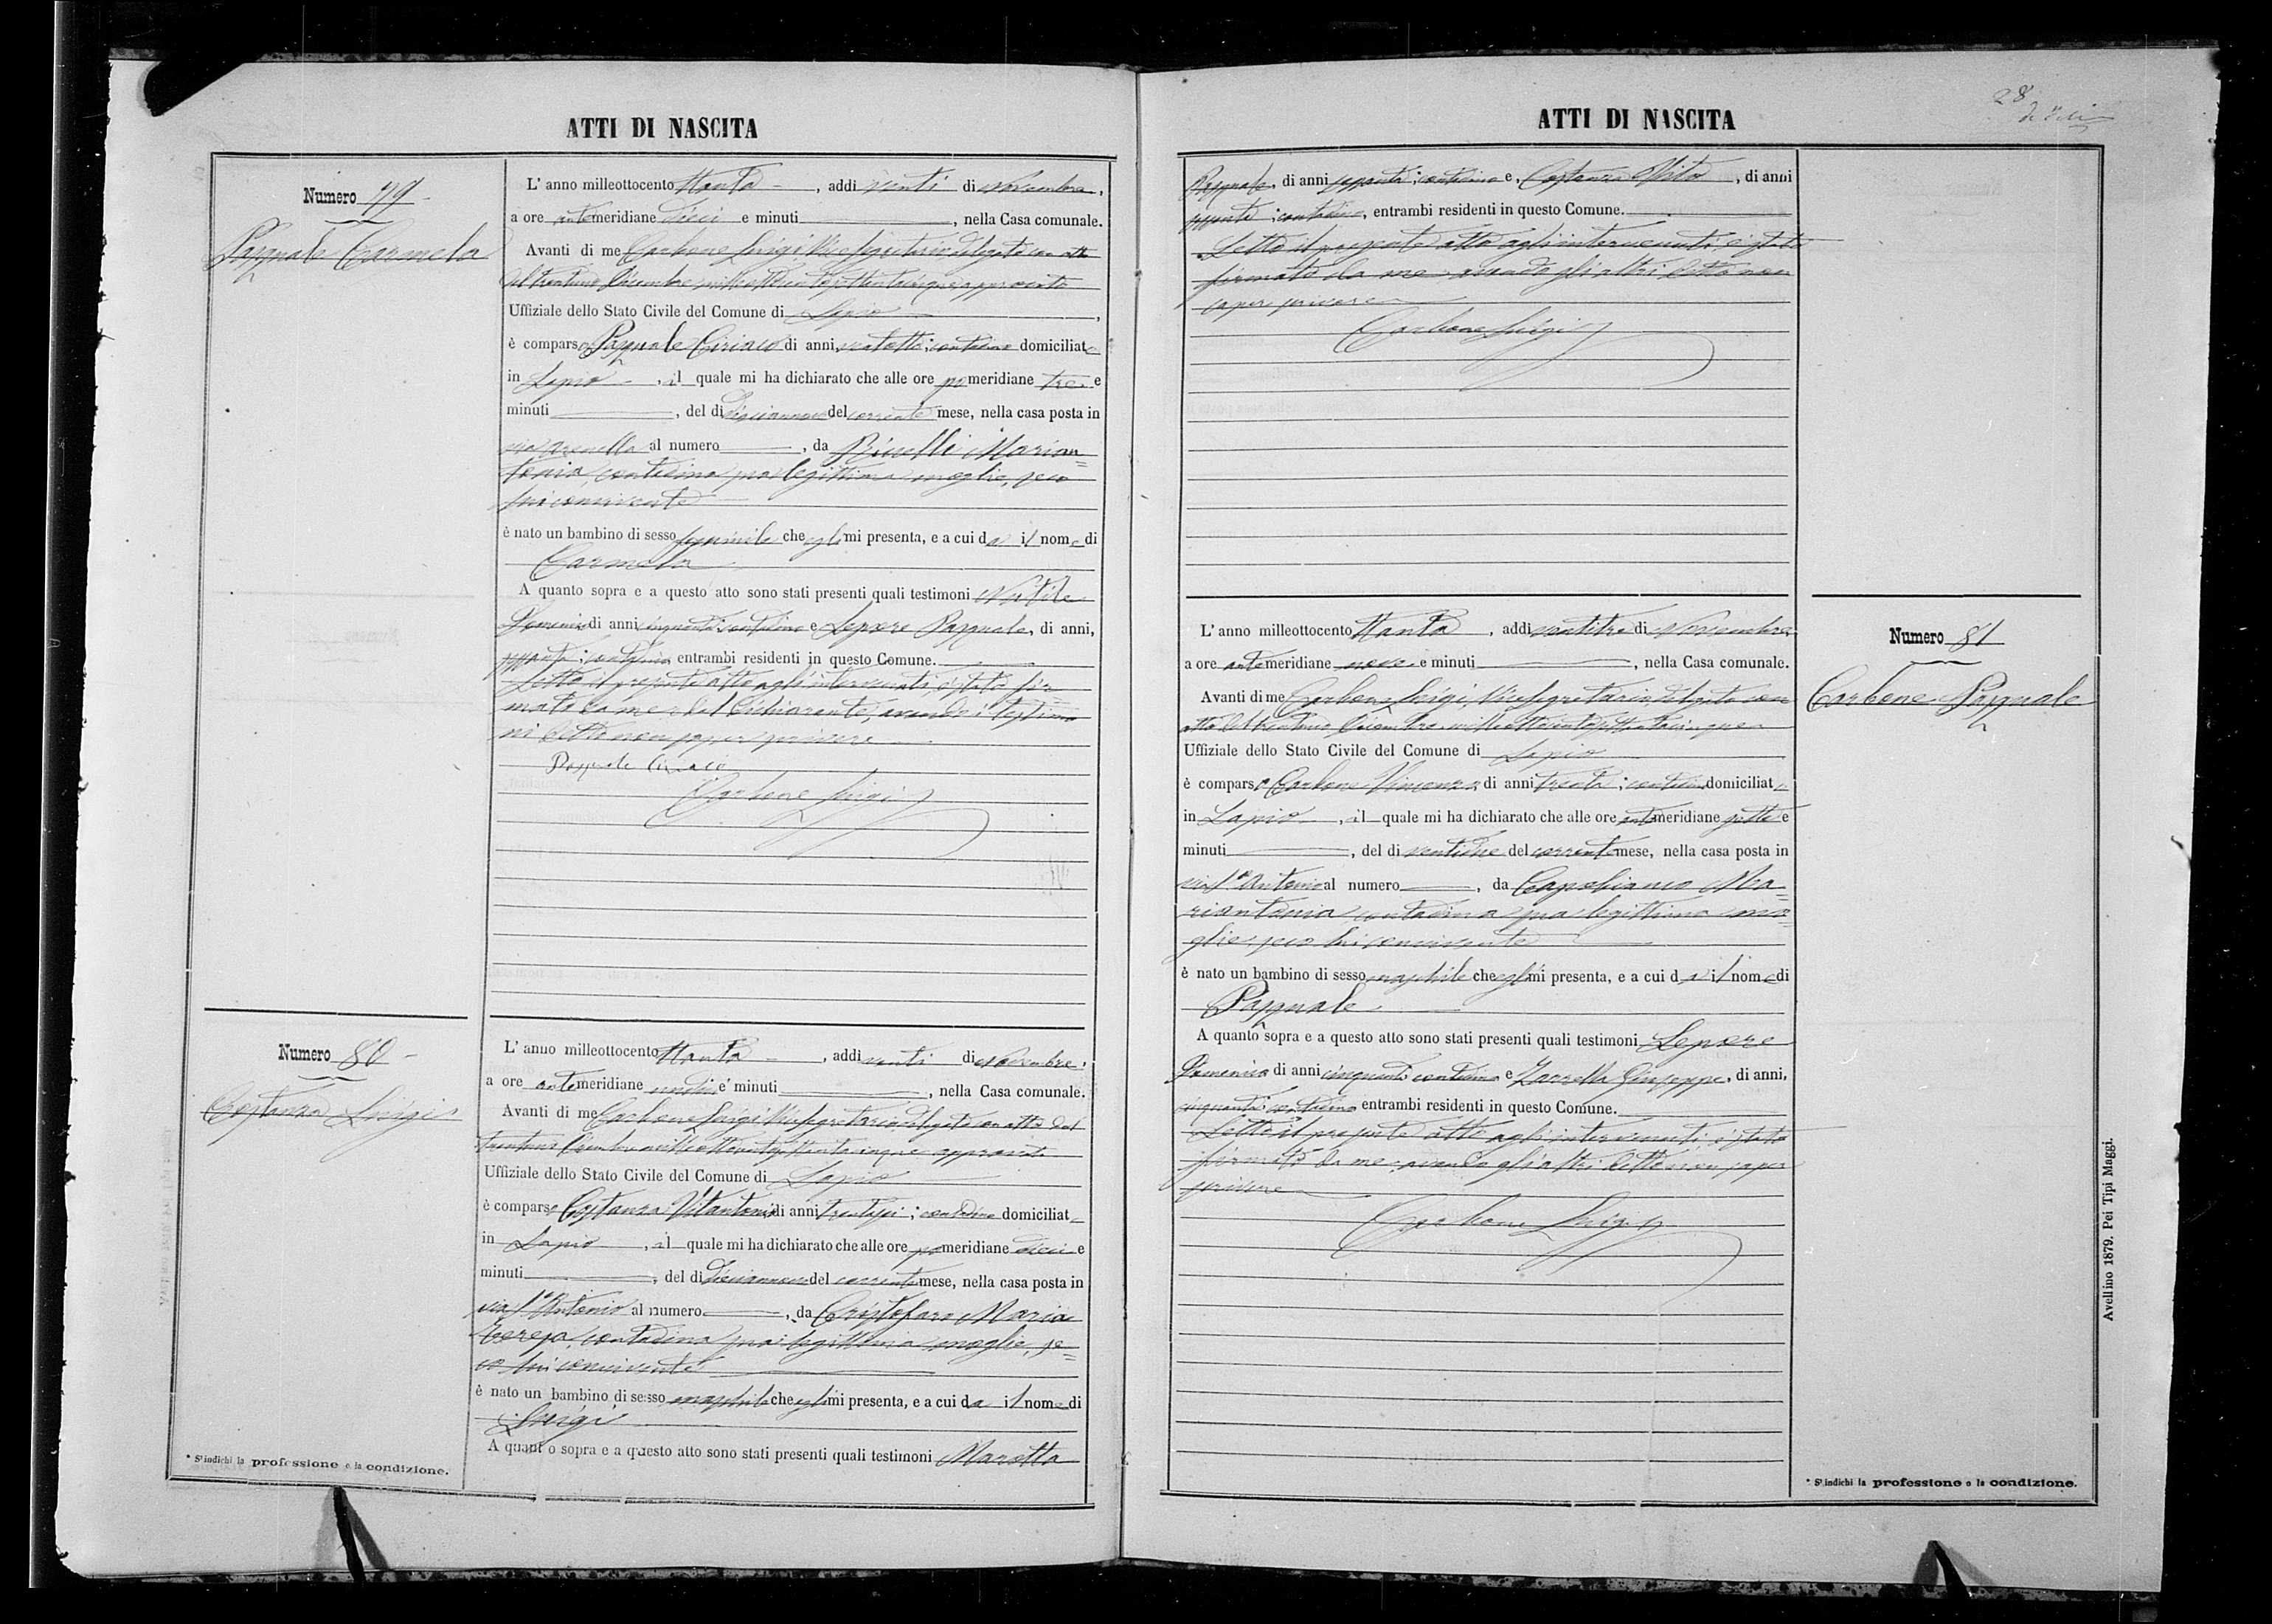 ATTI DI NASCITA
Numero 79
Pasquale Carmela
L' anno milleottocento ttanta, addi venti di Novembre,
a ore antemeridiane dieci e minuti, nella Casa comunale.
Avanti di me Carbone Luigi, Vice Segretario, delegato con atto
del trentuno Dicembre milleottocentosettantacinque approvato
Uffiziale dello Stato Civile del Comune di Lapio,
è comparso Pasquale Ciriaco di anni ventotto; contadino domiciliato
in Lapio, il quale mi ha dichiarato che alle ore pomeridiane tre e
minuti, del di diciannove del corrente mese, nella casa posta in
via Arenella al numero, da Rinelli Marian=
tonia, contadina sua legittima moglie, seco
lui convivente
è nato un bambino di sesso femminile che egli mi presenta, e a cui da il nome di
Carmela
A quanto sopra e a questo atto sono stati presenti quali testimoni
Domenico di anni cinquanta; contadino e Lepore Pasquale, di anni,
contadino entrambi residenti in questo Comune.
Letto il presente atto agl'intervenuti, è stato fir=
mato da me e dal dichiarante, avendo i testimo
ni detto non saper scrivere
Pasquale Ciriaco
Carbone Luigi
Numero 80
Costanza Luigi
L' anno milleottocento ttanta, addi venti di Novembre,
a ore antemeridiane undici e minuti, nella Casa comunale.
Avanti di me Carbone Luigi Vice Segretario, delegato con atto del
trentuno Dicembre milleottocentosettantacinque approvato
Uffiziale dello Stato Civile del Comune di Lapio
è comparso Costanza Vitantonio di anni trentasei; contadino domiciliato
in Lapio, il quale mi ha dichiarato che alle ore pomeridiane dieci e
minuti, del di diciannove del corrente mese, nella casa posta in
via S. Antonio al numero, da Cristofaro Maria
Teresa, contadina sua legittima moglie, se=
co lui convivente
è nato un bambino di sesso maschile che egli mi presenta, e a cui da il nome di
Luigi
A quanto sopra e a questo atto sono stati presenti quali testimoni Marotta
* S'indichi la professione o la condizione.
ATTI DI NASCITA
28
Pasquale, di anni sessanta; contadino e, Costanza Vito, di anni
contadino, entrambi residenti in questo Comune.
Letto il presente atto agli intervenuti, è stato
firmato da me avendo gli altri detto non
saper scrivere
Carbone Luigi
Numero 81
Carbone Pasquale
L' anno milleottocento ttanta, addi ventitre di Novembre,
a ore antemeridiane nove e minuti, nella Casa comunale.
Avanti di me Carbone Luigi, Vice Segretario, delegato con
atto del trentuno Dicembre milleottocentosettantacinque
Uffiziale dello Stato Civile del Comune di Lapio
è comparso Carbone Vincenzo di anni trenta; contadino domiciliato
in Lapio, il quale mi ha dichiarato che alle ore antemeridiane sette e
minuti, del di ventidue del corrente mese, nella casa posta in
via S. Antonio al numero, da Capobianco Ma=
riantonia contadina sua legittima mo=
glie, seco lui convivente
è nato un bambino di sesso maschile che egli mi presenta, e a cui da il nome di
Pasquale
A quanto sopra e a questo atto sono stati presenti quali testimoni Lepore
Domenico di anni cinquanta contadino e Zarrella Giuseppe, di anni,
cinquanta; contadino entrambi residenti in questo Comune.
Letto il presente atto agli intervenuti, è stato
firmato da me, avendo gli altri detto non saper
scrivere
Carbone Luigi
* S'indichi la professione o la condizione.
Avellino 1879. Pei Tipi Maggi.